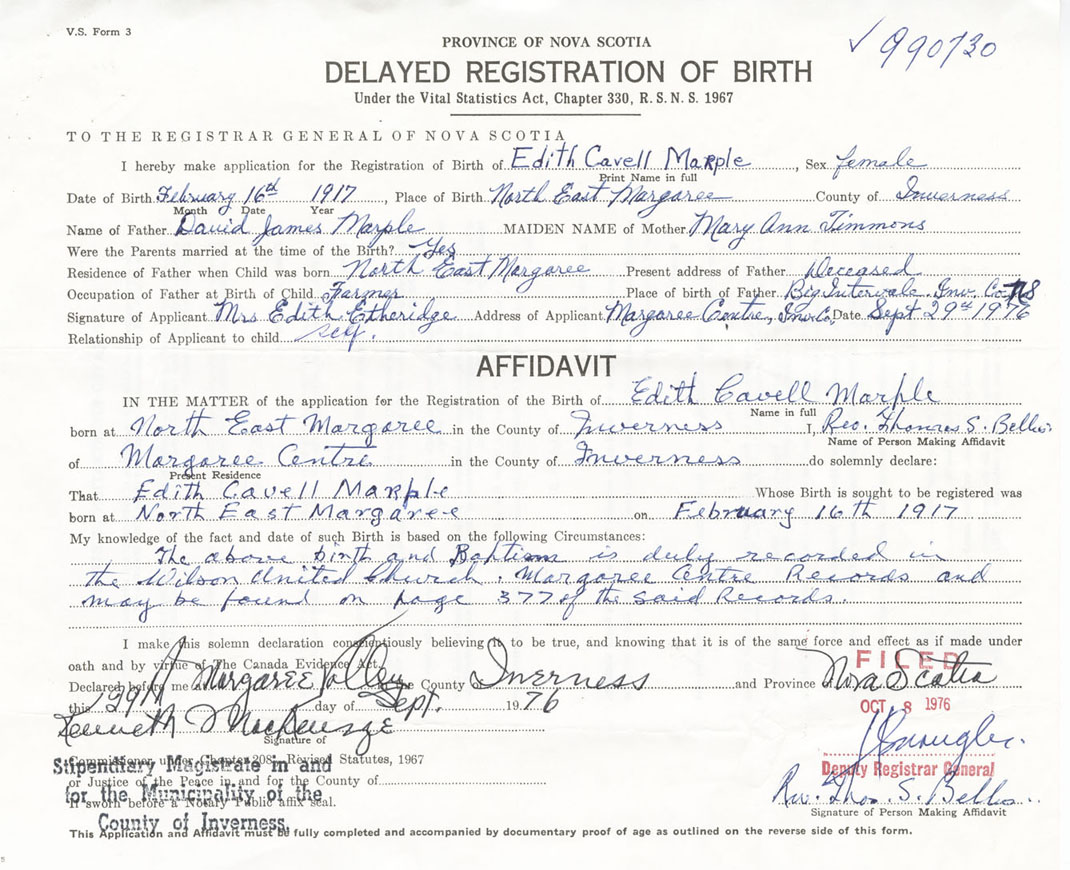 V.S. Form 3
✓ 990730
PROVINCE OF NOVA SCOTIA
DELAYED REGISTRATION OF BIRTH
Under the Vital Statistics Act, Chapter 330, R. S. N. S. 1967
TO THE REGISTRAR GENERAL OF NOVA SCOTIA
I hereby make application for the Registration of Birth of Edith Cavell Marple, Sex female
Print Name in full
Date of Birth February 16th 1917, Place of Birth North East Margaree County of Inverness
Month Date Year
Name of Father David James Marple MAIDEN NAME of Mother Mary Ann Timmons
Were the Parents married at the time of the Birth? Yes
Residence of Father when Child was born North East Margaree Present address of Father Deceased
Occupation of Father at Birth of Child Farmer Place of birth of Father Big Intervale. Inv. Co. NS
Signature of Applicant Mrs Edith Etheridge Address of Applicant Margaree Centre, Inv. Co, Date Sept 29th 1976
Relationship of Applicant to child self.
AFFIDAVIT
IN THE MATTER of the application for the Registration of the Birth of Edith Cavell Marple
Name in full
born at North East Margaree in the County of Inverness I, Rev. Thomas S. Bellis
Name of Person Making Affidavit
of Margaree Centre in the County of Inverness do solemnly declare:
Present Residence
That Edith Cavell Marple Whose Birth is sought to be registered was
born at North East Margaree on February 16th 1917
My knowledge of the fact and date of such Birth is based on the following Circumstances:
The above birth and Baptism is duly recorded in
the Wilson United Church. Margaree Centre Records and
may be found on page 377 of the said Records.
I make this solemn declaration conscientiously believing it to be true, and knowing that it is of the same force and effect as if made under
oath and by virtue of The Canada Evidence Act.
FILED
Declared before me at Margaree Valley the County Inverness and Province of Nova Scotia
this 29th day of Sept. 1976
OCT 8 1976
Kenneth J MacKenzie
Signature of
Commissioner under Chapter 208, Revised Statutes, 1967
Stipendiary Magistrate in and
Deputy Registrar General
or Justice of the Peace in and for the County of
for the Municipality of the
If sworn before a Notary Public affix seal.
Rev. Thos. S. Bellis
Signature of Person Making Affidavit
County of Inverness.
This Application and Affidavit must be fully completed and accompanied by documentary proof of age as outlined on the reverse side of this form.